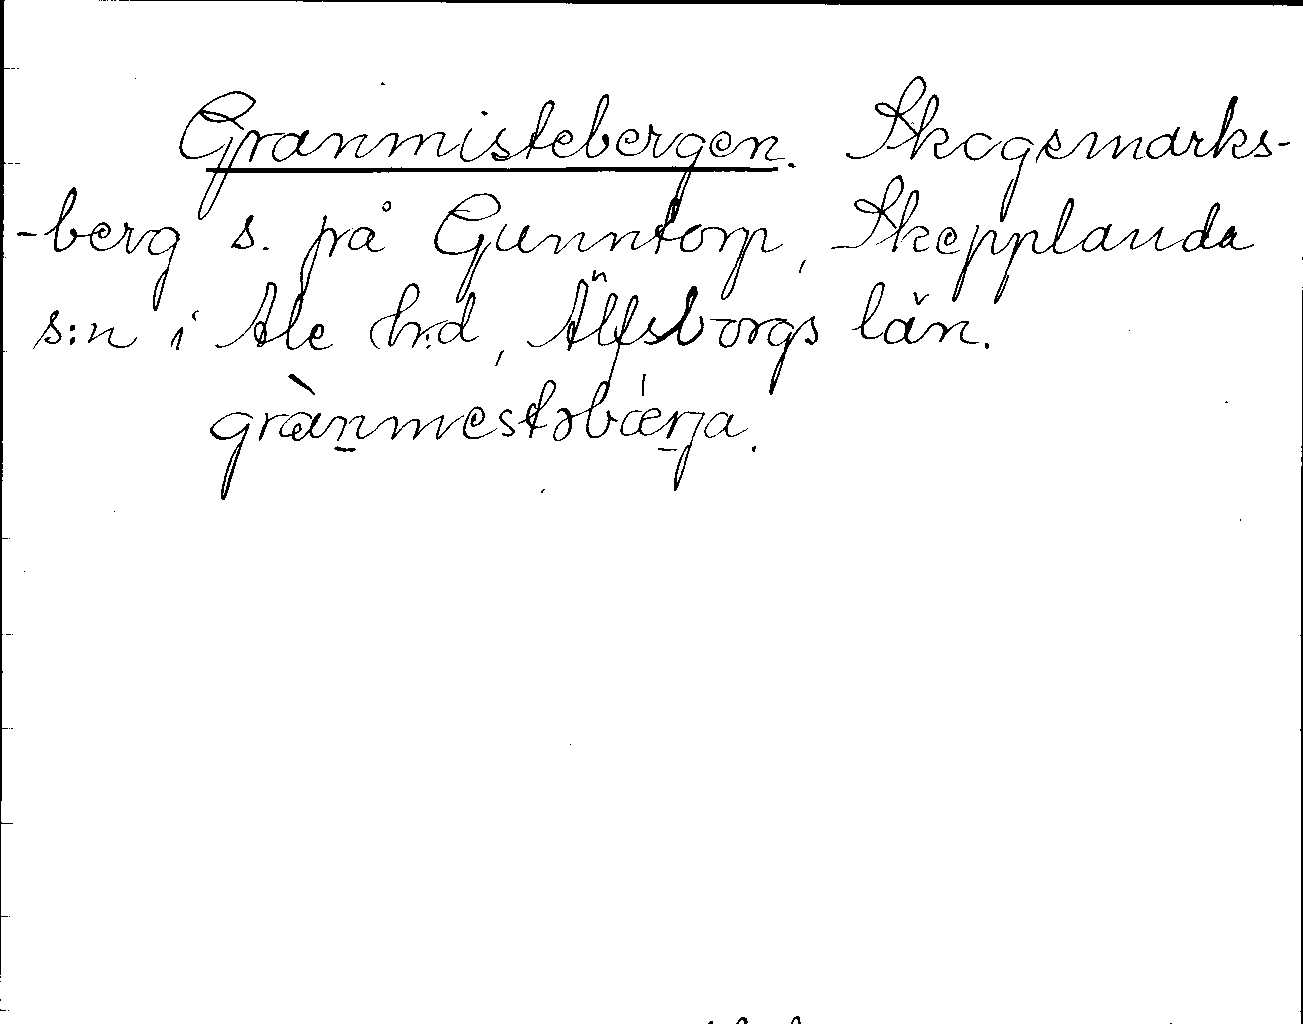 Granmistebergen. Skogsmarks-
-berg s. på Gunntorp, Skepplanda
s:n i Ale hrd, Älfsborgs län.
grànmestəbærja.